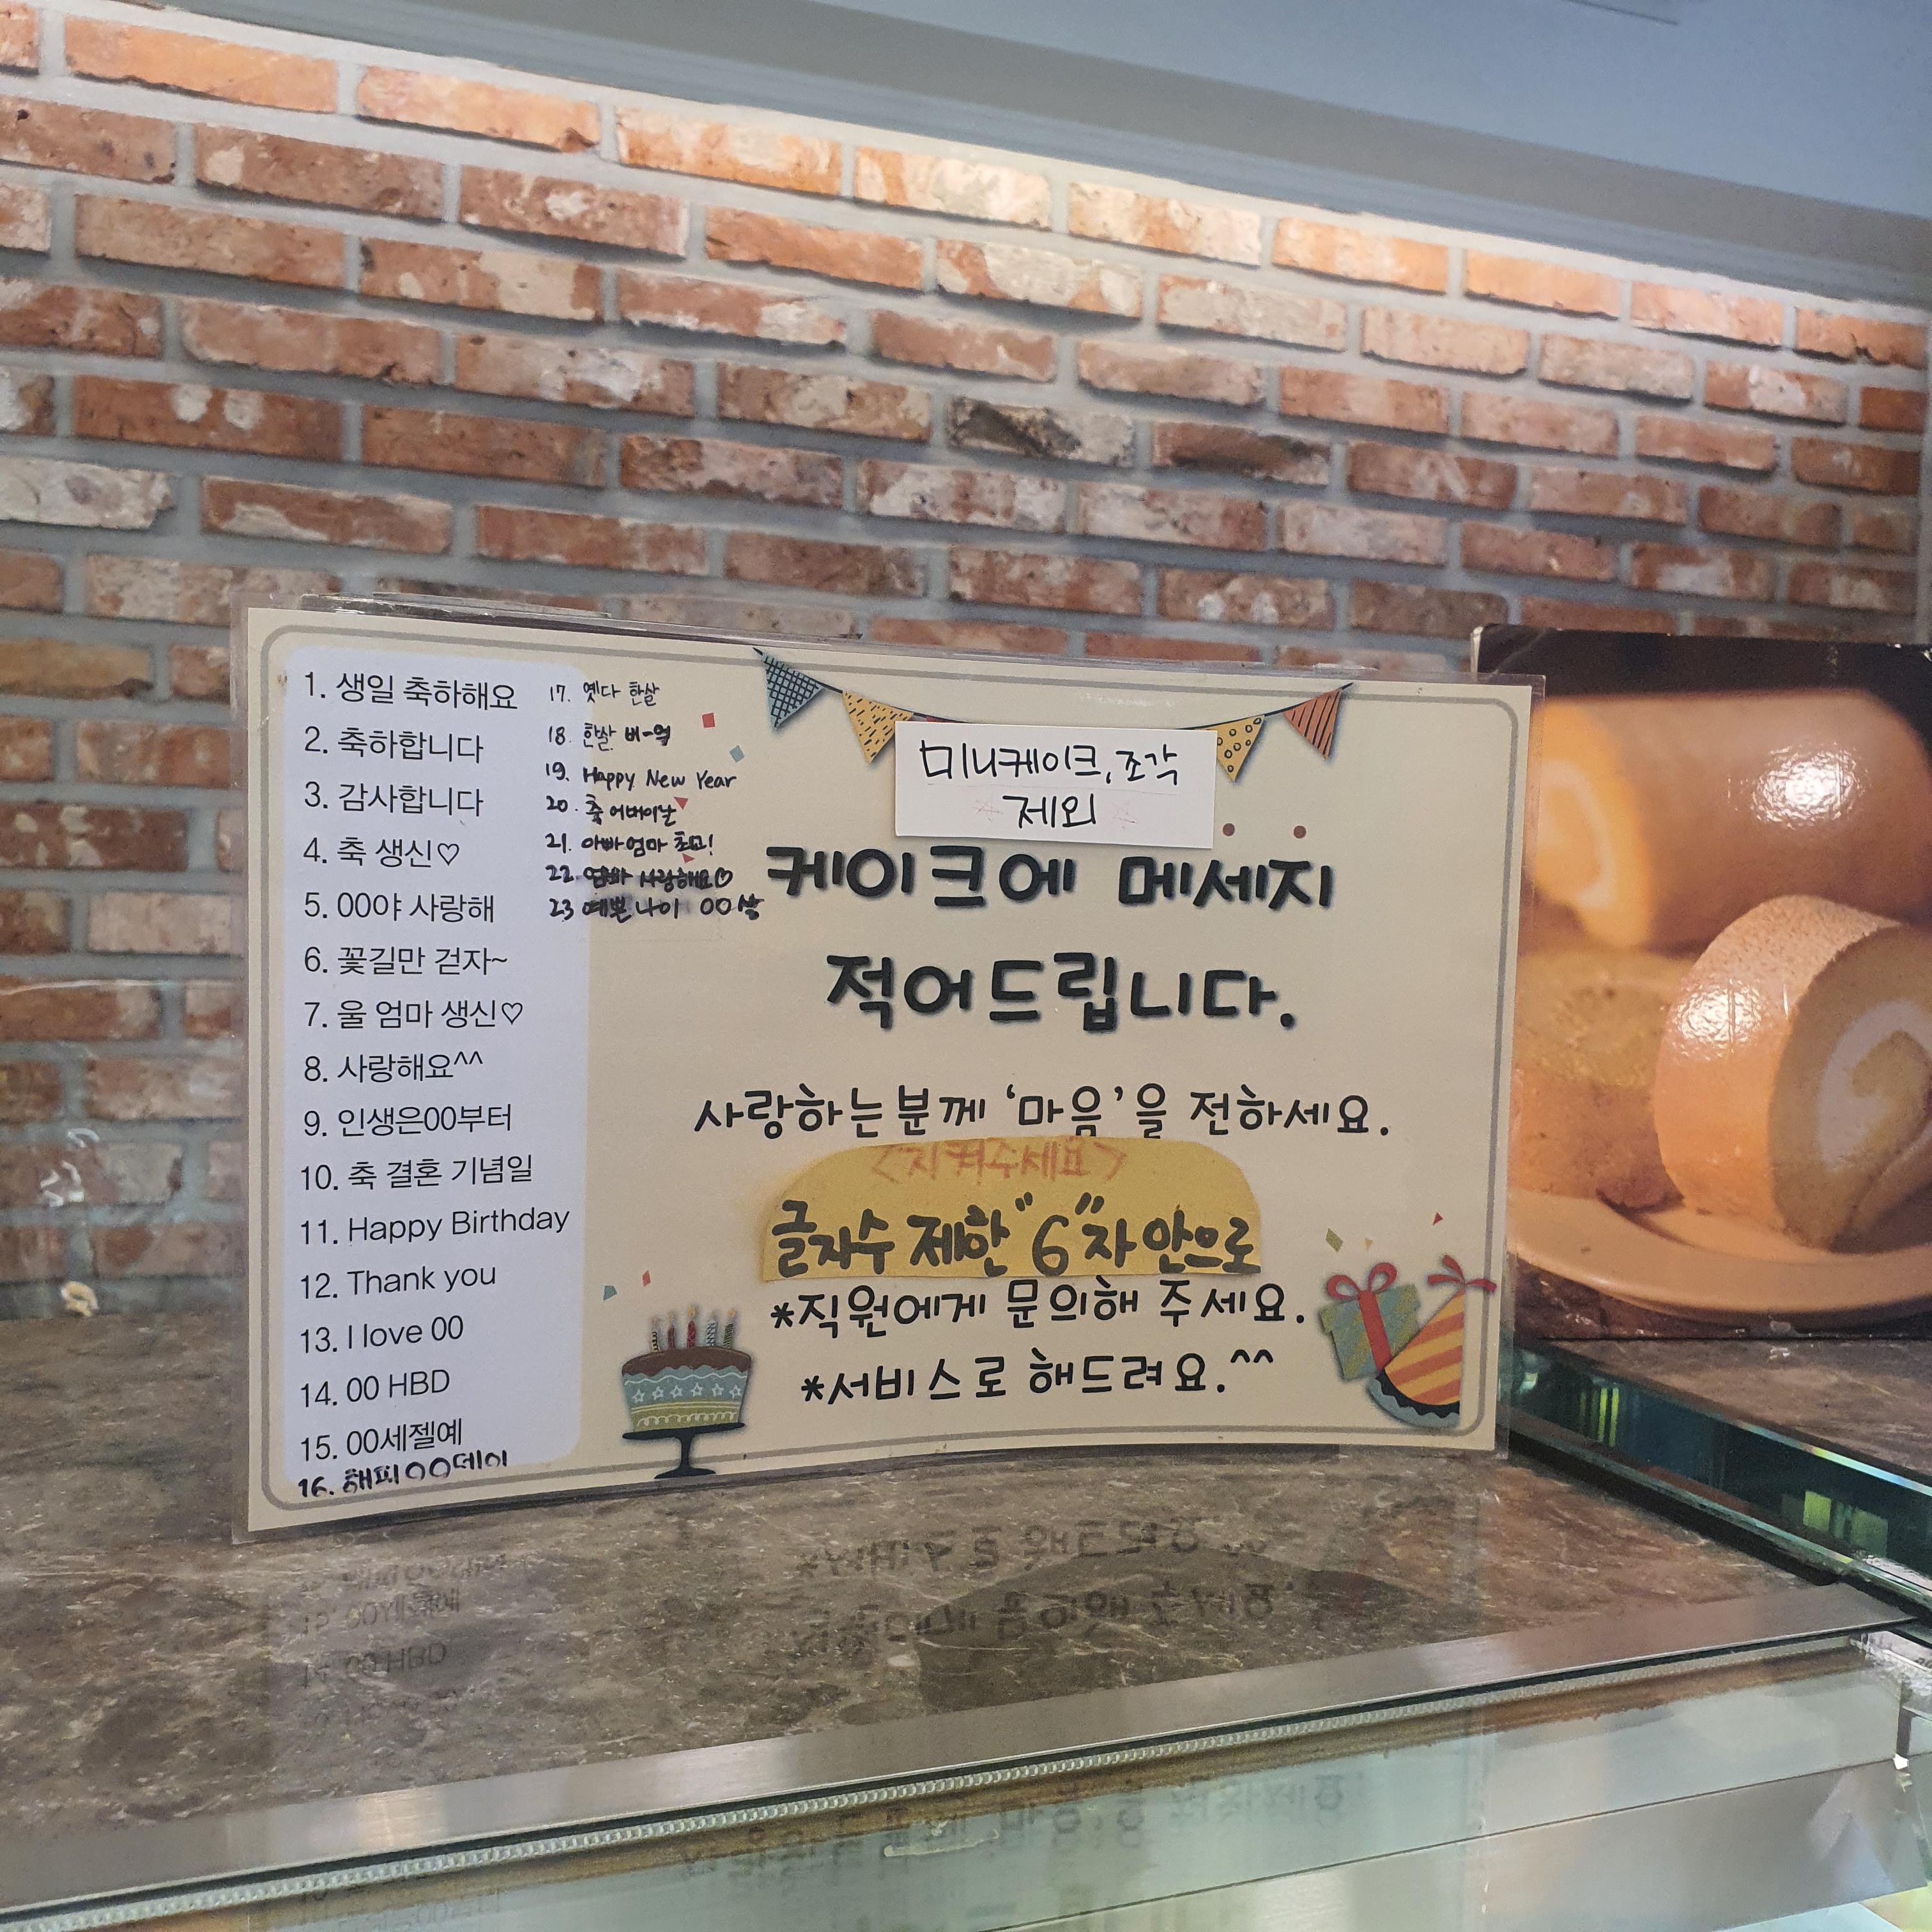 1. 생일 축하해요
2. 축하합니다
3. 감사합니다
4. 축 생신♡
5. 00야 사랑해
6. 꽃길만 걷자~
7. 울 엄마 생신♡
8. 사랑해요^^
9. 인생은00부터
10. 축 결혼 기념일
11. Happy Birthday
12. Thank you
13. I love 00
14. 00 HBD
15. 00세젤예
16. 해피00데이
17. 옛다 한살
18. 한살 버-억
19. Happy New Year
20. 축 어버이날
21. 아빠엄마 최고!
22. 사랑해요♡
23 예쁜나이 00살
미니케이크,조각
제외
케이크에 메세지
적어드립니다.
사랑하는분께 '마음'을 전하세요.
<지켜주세요>
글자수 제한 "6"자 안으로
*직원에게 문의해 주세요.
*서비스로 해드려요.^^